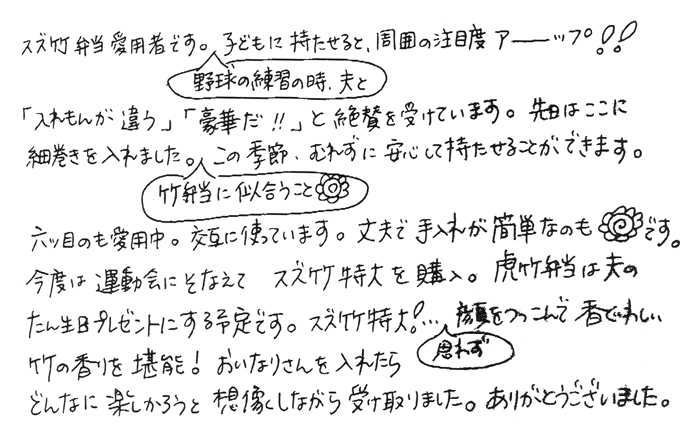 スズ竹弁当愛用者です。子どもに持たせると、周囲の注目度アーップ!!
野球の練習の時、夫と
「入れもんが違う」「豪華だ!!」と絶賛を受けています。先日はここに
細巻きを入れました。この季節、むれずに安心して持たせることができます。
竹弁当に似合うこと
六ッ目のも愛用中。交互に使っています。丈夫で手入れが簡単なのも です。
今度は運動会にそなえて スズ竹特大を購入。虎竹弁当は夫の
たん生日プレゼントにする予定です。スズ竹特大!…顔をつっこんで香ぐわしい
思わず
竹の香りを堪能!おいなりさんを入れたら
どんなに楽しかろうと想像しながら受け取りました。ありがとうございました。